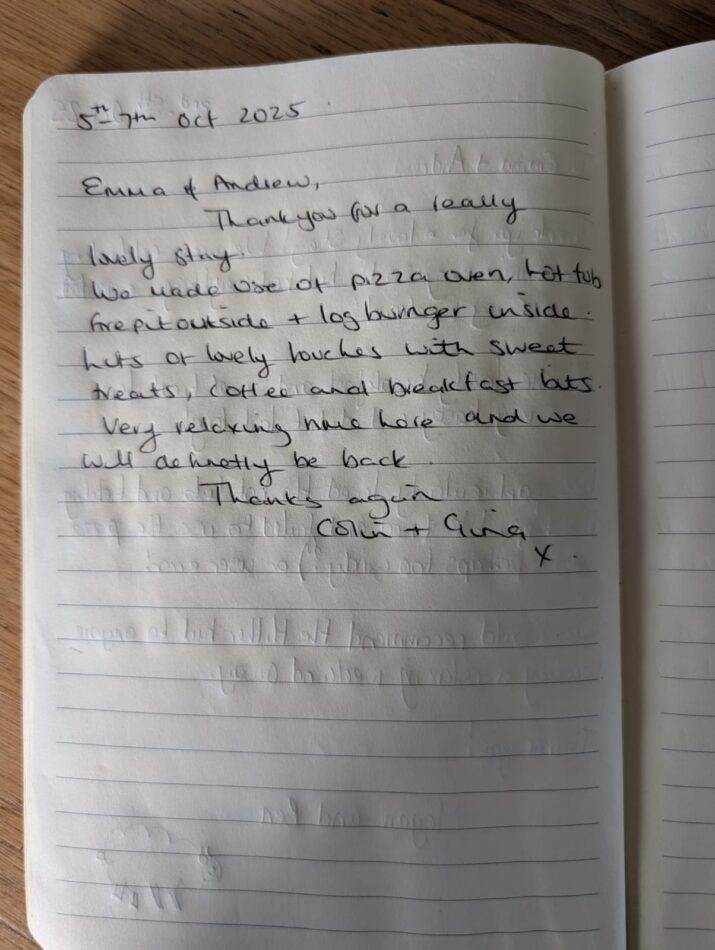 5th - 7th Oct 2025
Emma & Andrew,
Thankyou for a really
lovely stay.
We made use of pizza oven, hot tub
fire pit outside + log burnger inside.
Lots of lovely touches with sweet
treats, coffee and breakfast bits.
Very relaxing time here and we
will definetly be back.
Thanks again
Colin + Gina
x.